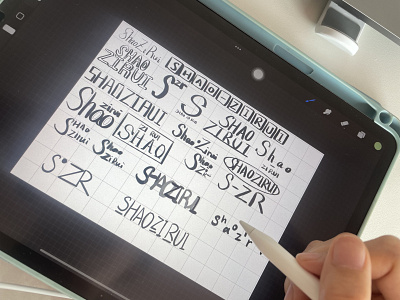 ShaoZiRui
SHAO ZIRUI
SHAOZIRUI
S
SHAOZIRUI
SHAO ZIRUI
Shao
ZI RUI
Shao ZIRUI
SHAO
ZI RUI
ShaoZirui
SHAOZIRUI
SHAO ZIRUI
Shao Zirui
S-ZR
S·ZR
SHAOZIRUI
SHAOZIRUI